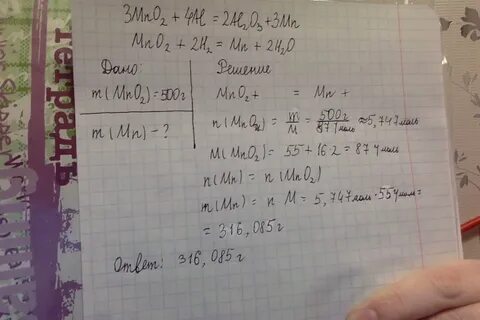 3MnO₂ + 4Al = 2Al₂O₃ + 3Mn
MnO₂ + 2H₂ = Mn + 2H₂O
Дано:
m(MnO₂) = 500г
m(Mn) - ?
Решение
MnO₂ + = Mn +
n(MnO₂) = m/M = 500г/87г/моль ≈ 5,747моль
M(MnO₂) = 55 + 16·2 = 87г/моль
n(Mn) = n(MnO₂)
m(Mn) = n·M = 5,747моль·55г/моль =
= 316,085г
Ответ: 316,085г
тетрадь